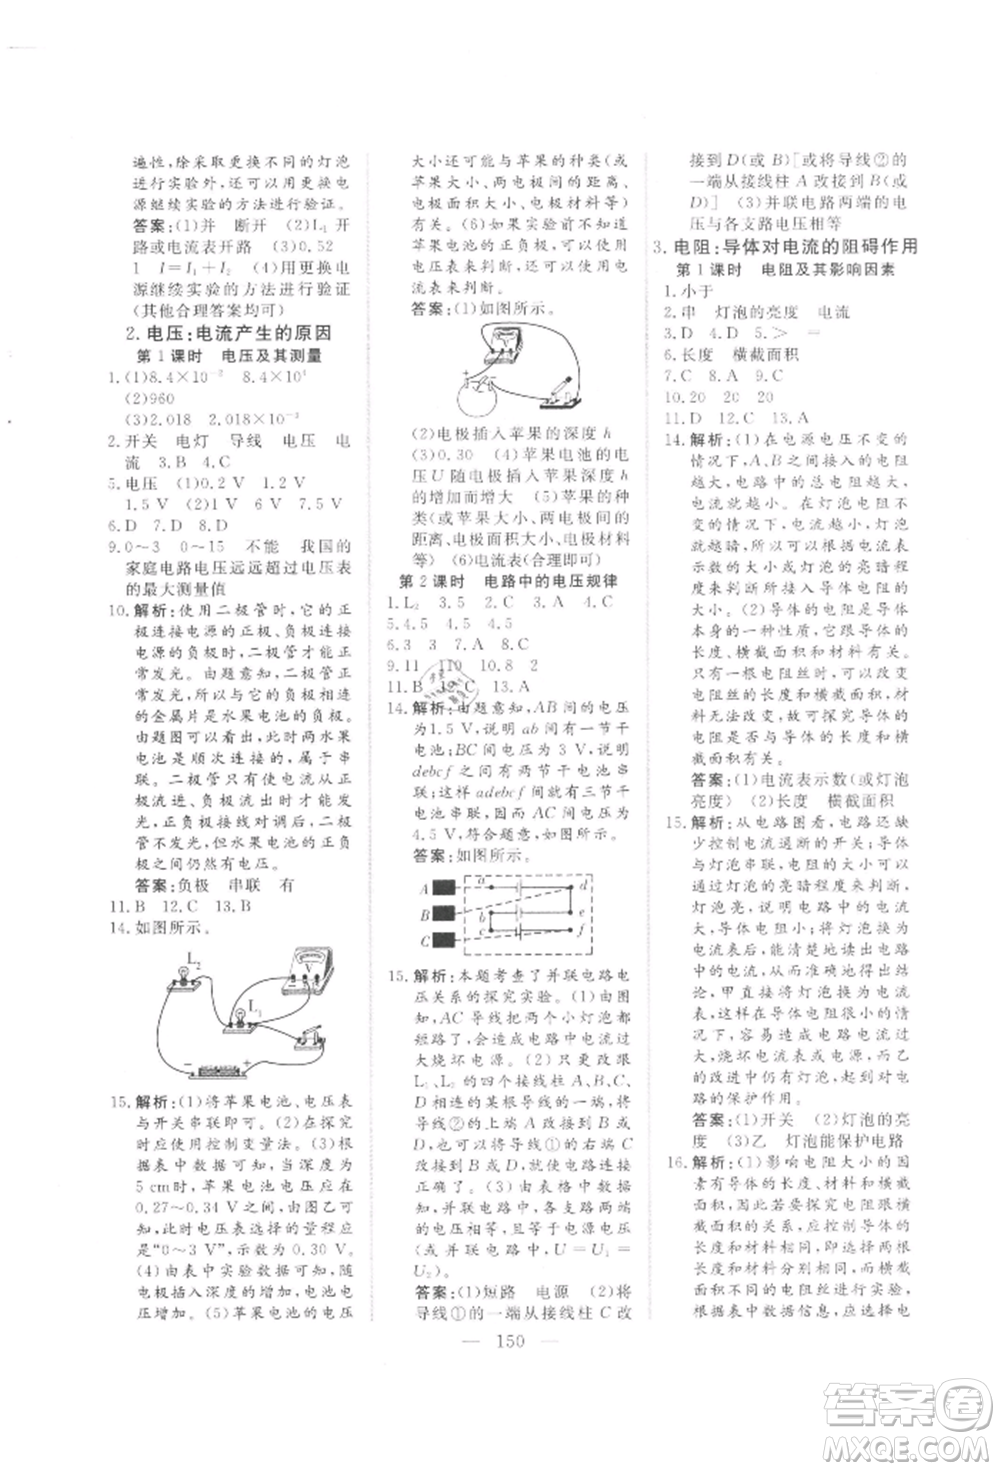 遍性,除采取更换不同的灯泡
进行实验外,还可以更换电
源继续实验的方法进行验证。
答案:(1)并 断开 (2)L₁ 开
路或电流表开路 (3)0.52
1 I=I₁+I₂ (4)用更换电
源继续实验的方法进行验证
(其他合理答案均可)
2. 电压:电流产生的原因
第 1 课时 电压及其测量
1.(1)8.4×10⁻² 8.4×10⁻⁵
(2)960
(3)2.018 2.018×10⁻³
2.开关 电灯 导线 电压 电
流 3.B 4.C
5.电压 (1)0.2 V 1.2 V
1.5 V (2)1 V 6 V 7.5 V
6.D 7.D 8.D
9.0～3 0～15 不能 我国的
家庭电路电压远远超过电压表
的最大测量值
10.解析:使用二极管时,其正
极连接电源的正极、负极连接
电源的负极,二极管才能正
常发光。二极管正常发光,
所以与二极管负极相连接
的金属片是水果电池的负极,
由题图可以看出,两水果电
池是顺次连接的,所以是串
联。二极管只有在电流从正
极流进、负极流出时才能发
光,正负极接线对调后,二极
管不发光,但水果电池的正负
极之间仍然有电压。
答案:负极 串联 有
11.B 12.C 13.B
14.如图所示。
L₂
V
L₁
−
+
15.解析:(1)将苹果电池、电压表
与开关串联即可。(2)在探究
时应使用控制变量法。(3)根
据表中数据知,电极插入深度为
5 cm时,电池电压应在
0.27～0.34 V之间,由图乙可
知,此时电压表选择的量程应
是“0～3 V”,示数为0.30 V。
(4)由表中实验数据可知,电极
插入深度的增加,电池电压
也增加。(5)苹果电池的电压
大小还可能与苹果的种类(或
苹果大小、两电极间的距离、
电极面积大小、电极材料等)
有关。(6)如果实验前不知
苹果电池的正负极,可先使用电
流表进行判断。
答案:(1)如图所示。
(2)电极插入苹果的深度 h
(3)0.30 (4)苹果电池的电
压 U 随电极插入苹果深度 h
的增加而增大 (5)苹果的种
类(或苹果大小、两电极间的
距离、电极面积大小、电极材料
等) (6)电流表(合理即可)
第 2 课时 电路中的电压规律
1.L₂ 3.5 2.C 3.D 4.C
5.4.5 4.5 4.5
6.3 3 7.A 8.C
9.11 110 10.8 2
11.B 12.C 13.A
14.解析:由题意知,AB 间的电压
为1.5 V,说明 ab 间有一节干
电池;BC 间电压为 3 V,说明
debcf 之间有两节干电池串
联;这样 adebcf 之间有三节干
电池串联,则 AC 之间电压为
4.5 V,符合题意,如图所示。
答案:如图所示。
A
B
C
a
d
b
e
c
f
15.解析:本题考查了并联电路电
压关系的探究实验。(1)由图
知,AC 导线将两个小灯泡都
短路了,会造成电路中电流过
大烧坏电源。(2)只更改跟
L₁、L₂ 的一个接线柱 C、A、B、
D 相连的某根导线,可以将
导线②的上端从 A 改到 B 或
D,也可将导线①的右端 C 改
接到 B 或 D,这样电路连接就
正确了。(3)由表格中数据知,
并联电路中,各支路两端
的电压相等且等于电源电压
(或并联电路中 U=U₁=
U₂)。
答案:(1)短路 电源 (2)将
导线①的一端从接线柱 C 改
接到 D(或 B)[或将导线②的
一端从接线柱 A 改接到 B(或
D)] (3)并联电路两端的电
压与各支路电压相等
3. 电阻:导体对电流的阻碍作用
第 1 课时 电阻及其影响因素
1.小于
2.串 灯泡的亮度 电流
3.D 4.D 5.＞ ＝
6.长度 横截面积
7.C 8.A 9.C
10.20 20 20
11.D 12.C 13.A
14.解析:(1)在电源电压不变的
情况下,MN之间的电阻
越大,电路中的总电阻越大,
电流就越小。灯泡电阻不
变的情况下,电流越小,灯泡
就越暗,可以根据电流表
示数的大小或灯泡的亮暗程
度来判断 MN 之间的电阻
的大小。(2)导体的电阻是导体
本身的一种性质,它跟导体的
长度、横截面积和材料有关。
只有一种电阻丝,所以可以改变
电阻丝的长度和横截面积,
材料无法改变,故探究导体的
电阻是否与导体的长度和横
截面积有关。
答案:(1)电流表示数(或灯泡
亮度) (2)长度 横截面积
15.解析:从电路图看,电路还缺
少控制电流通断的开关;导体
与灯泡串联,电阻的大小可以
通过灯泡的亮暗程度来判断,
灯泡亮,说明电路中的电流
大,导体的电阻小。串联接入
电流表后,能清楚地读出电路
中的电流,灯泡起到保护作
用,甲直接将灯泡换成电流
表,在导体电阻很小的情
况下,容易造成电路电流过
大,烧坏电流表或电源,而乙
的设计中仍有灯泡,起到一定
的保护作用。
答案:(1)开关 (2)灯泡的亮
度 (3)乙 灯泡能保护电路
16.解析:(1)影响电阻大小的因
素有导体的长度、材料、横
截面积。所以若要探究电阻跟
横截面积的关系,应控制导体的
长度和材料相同。根据电阻跟
长度和材料分别相同,横
截面积不同,可以探究电阻跟横
截面积的关系。
据表中数据信息,应选择电
— 150 —
答案圈
MXQE.COM